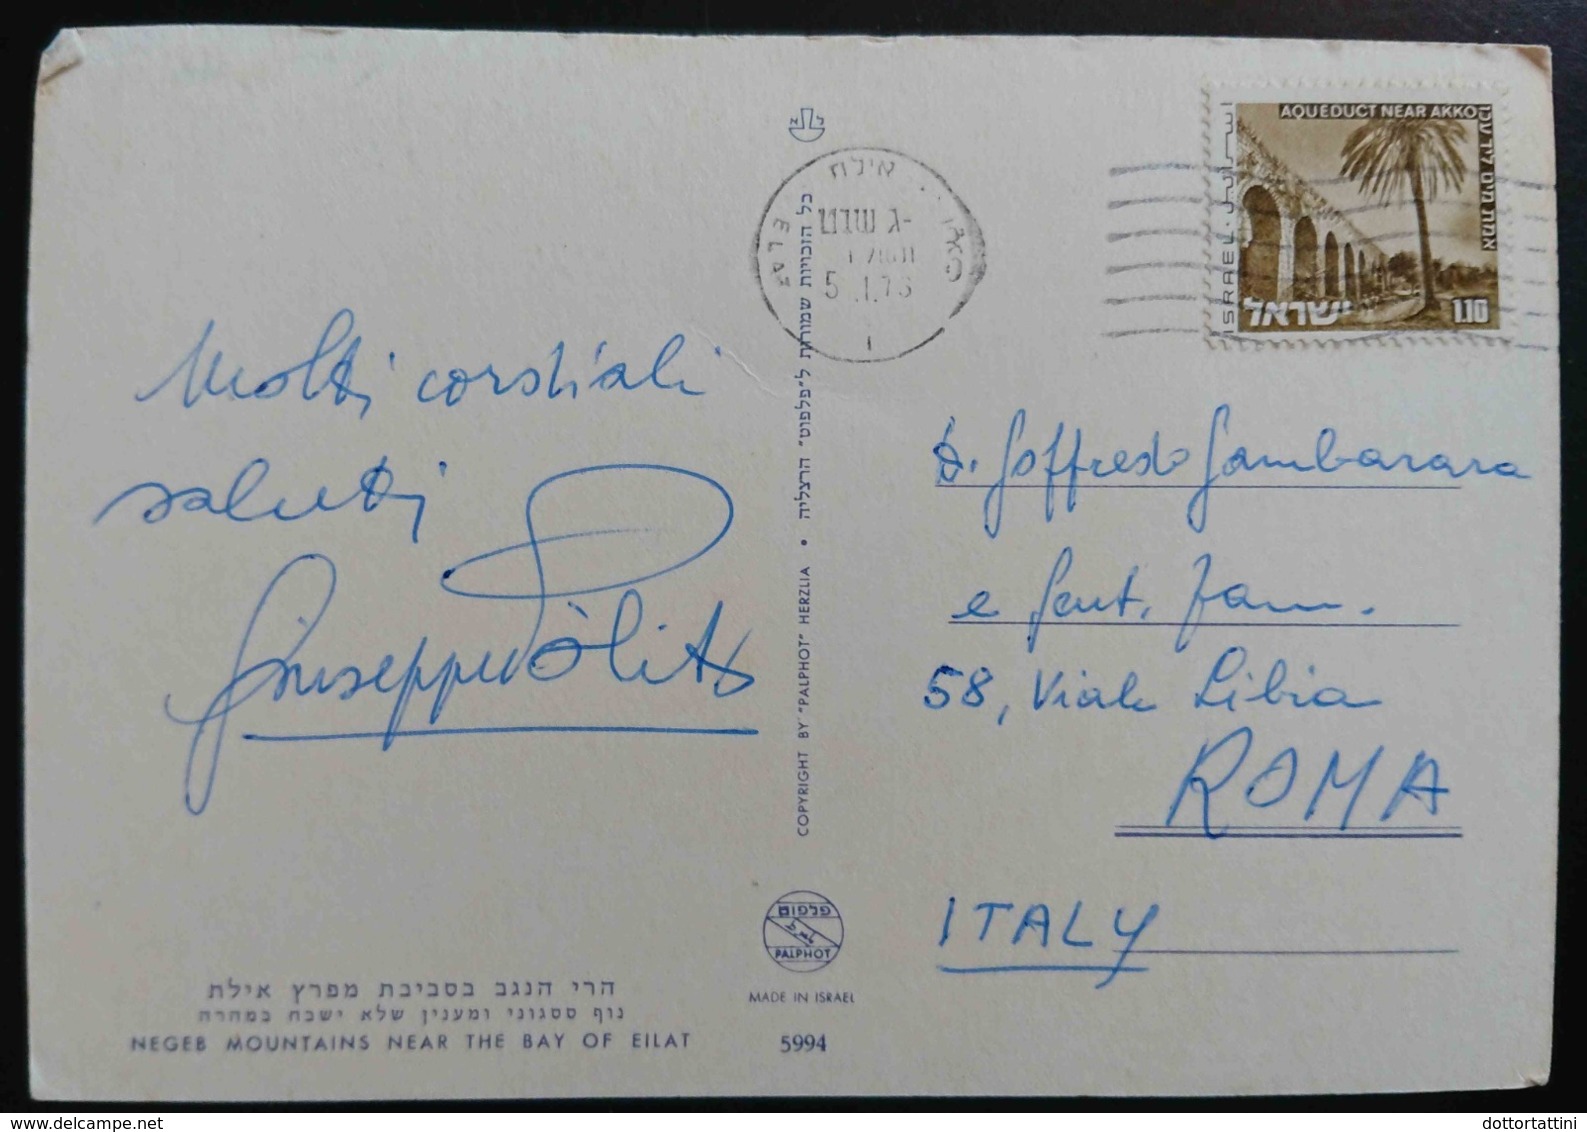 Molti cordiali
saluti
Giuseppe
הרי הנגב בסביבת מפרץ אילת
נוף ססגוני ומענין שלא ישכח במהרה
NEGEB MOUNTAINS NEAR THE BAY OF EILAT
כל הזכויות שמורות ל״פלפוט״ הרצליה • COPYRIGHT BY "PALPHOT" HERZLIA
פלפוט
PALPHOT
MADE IN ISRAEL
5994
אילת
ELAT
ג שבט-
5.1.76
AQUEDUCT NEAR AKKO
אמת מים ליד עכו
ISRAEL
ישראל
1.10
D. Goffredo Gambarara
e Gent. Fam.
58, Viale Libia
ROMA
ITALY
dottortattini